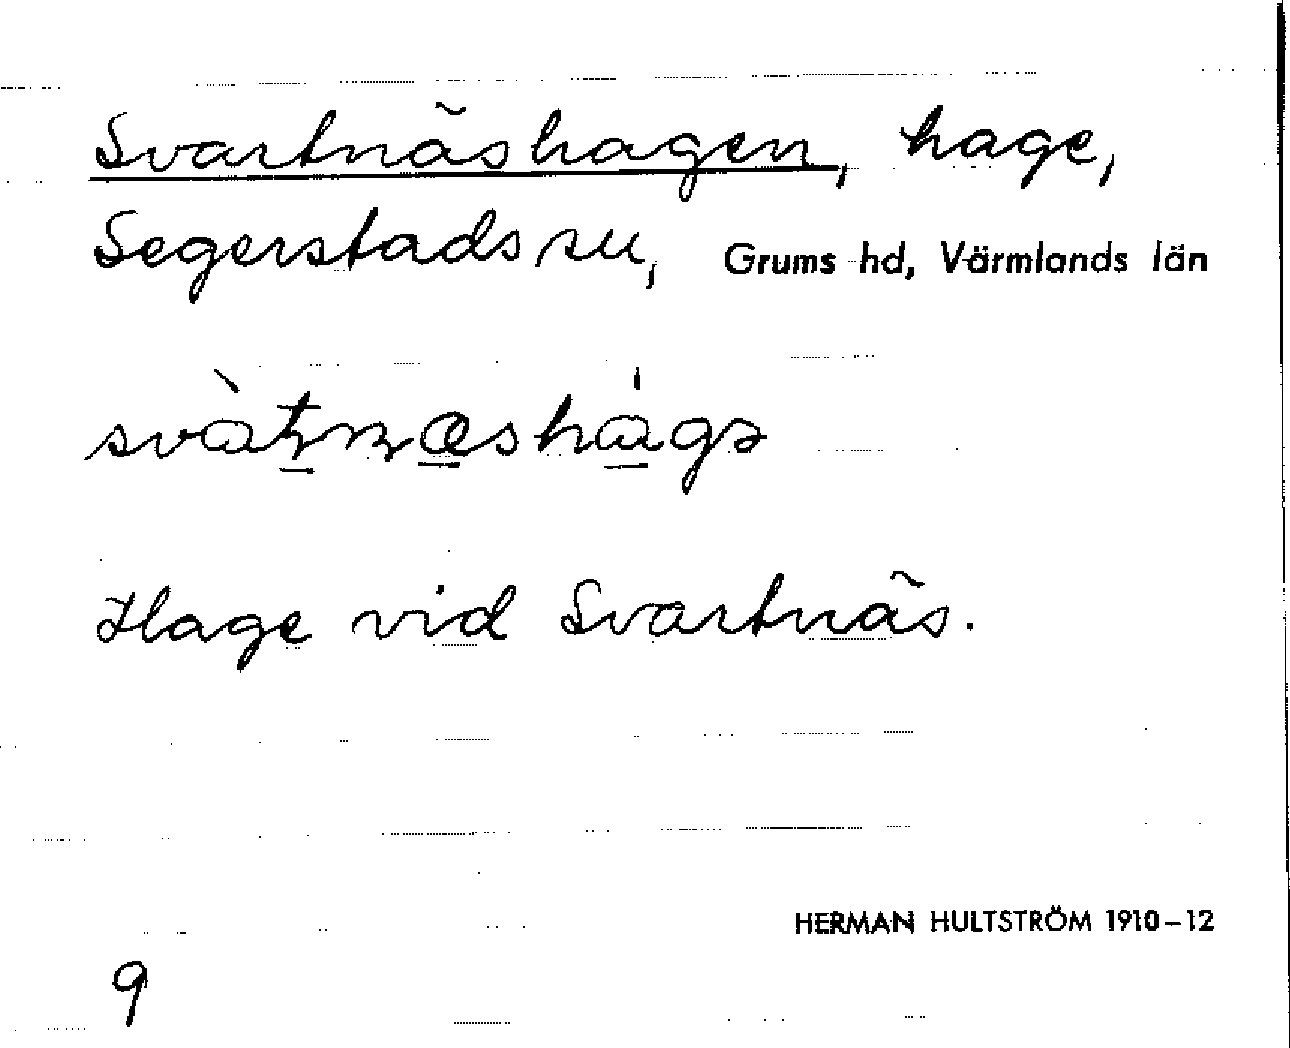 Svartnäshagen, hage,
Segerstads sn, Grums hd, Värmlands län
svàʈɳæshágə
Hage vid Svartnäs.
HERMAN HULTSTRÖM 1910–12
9